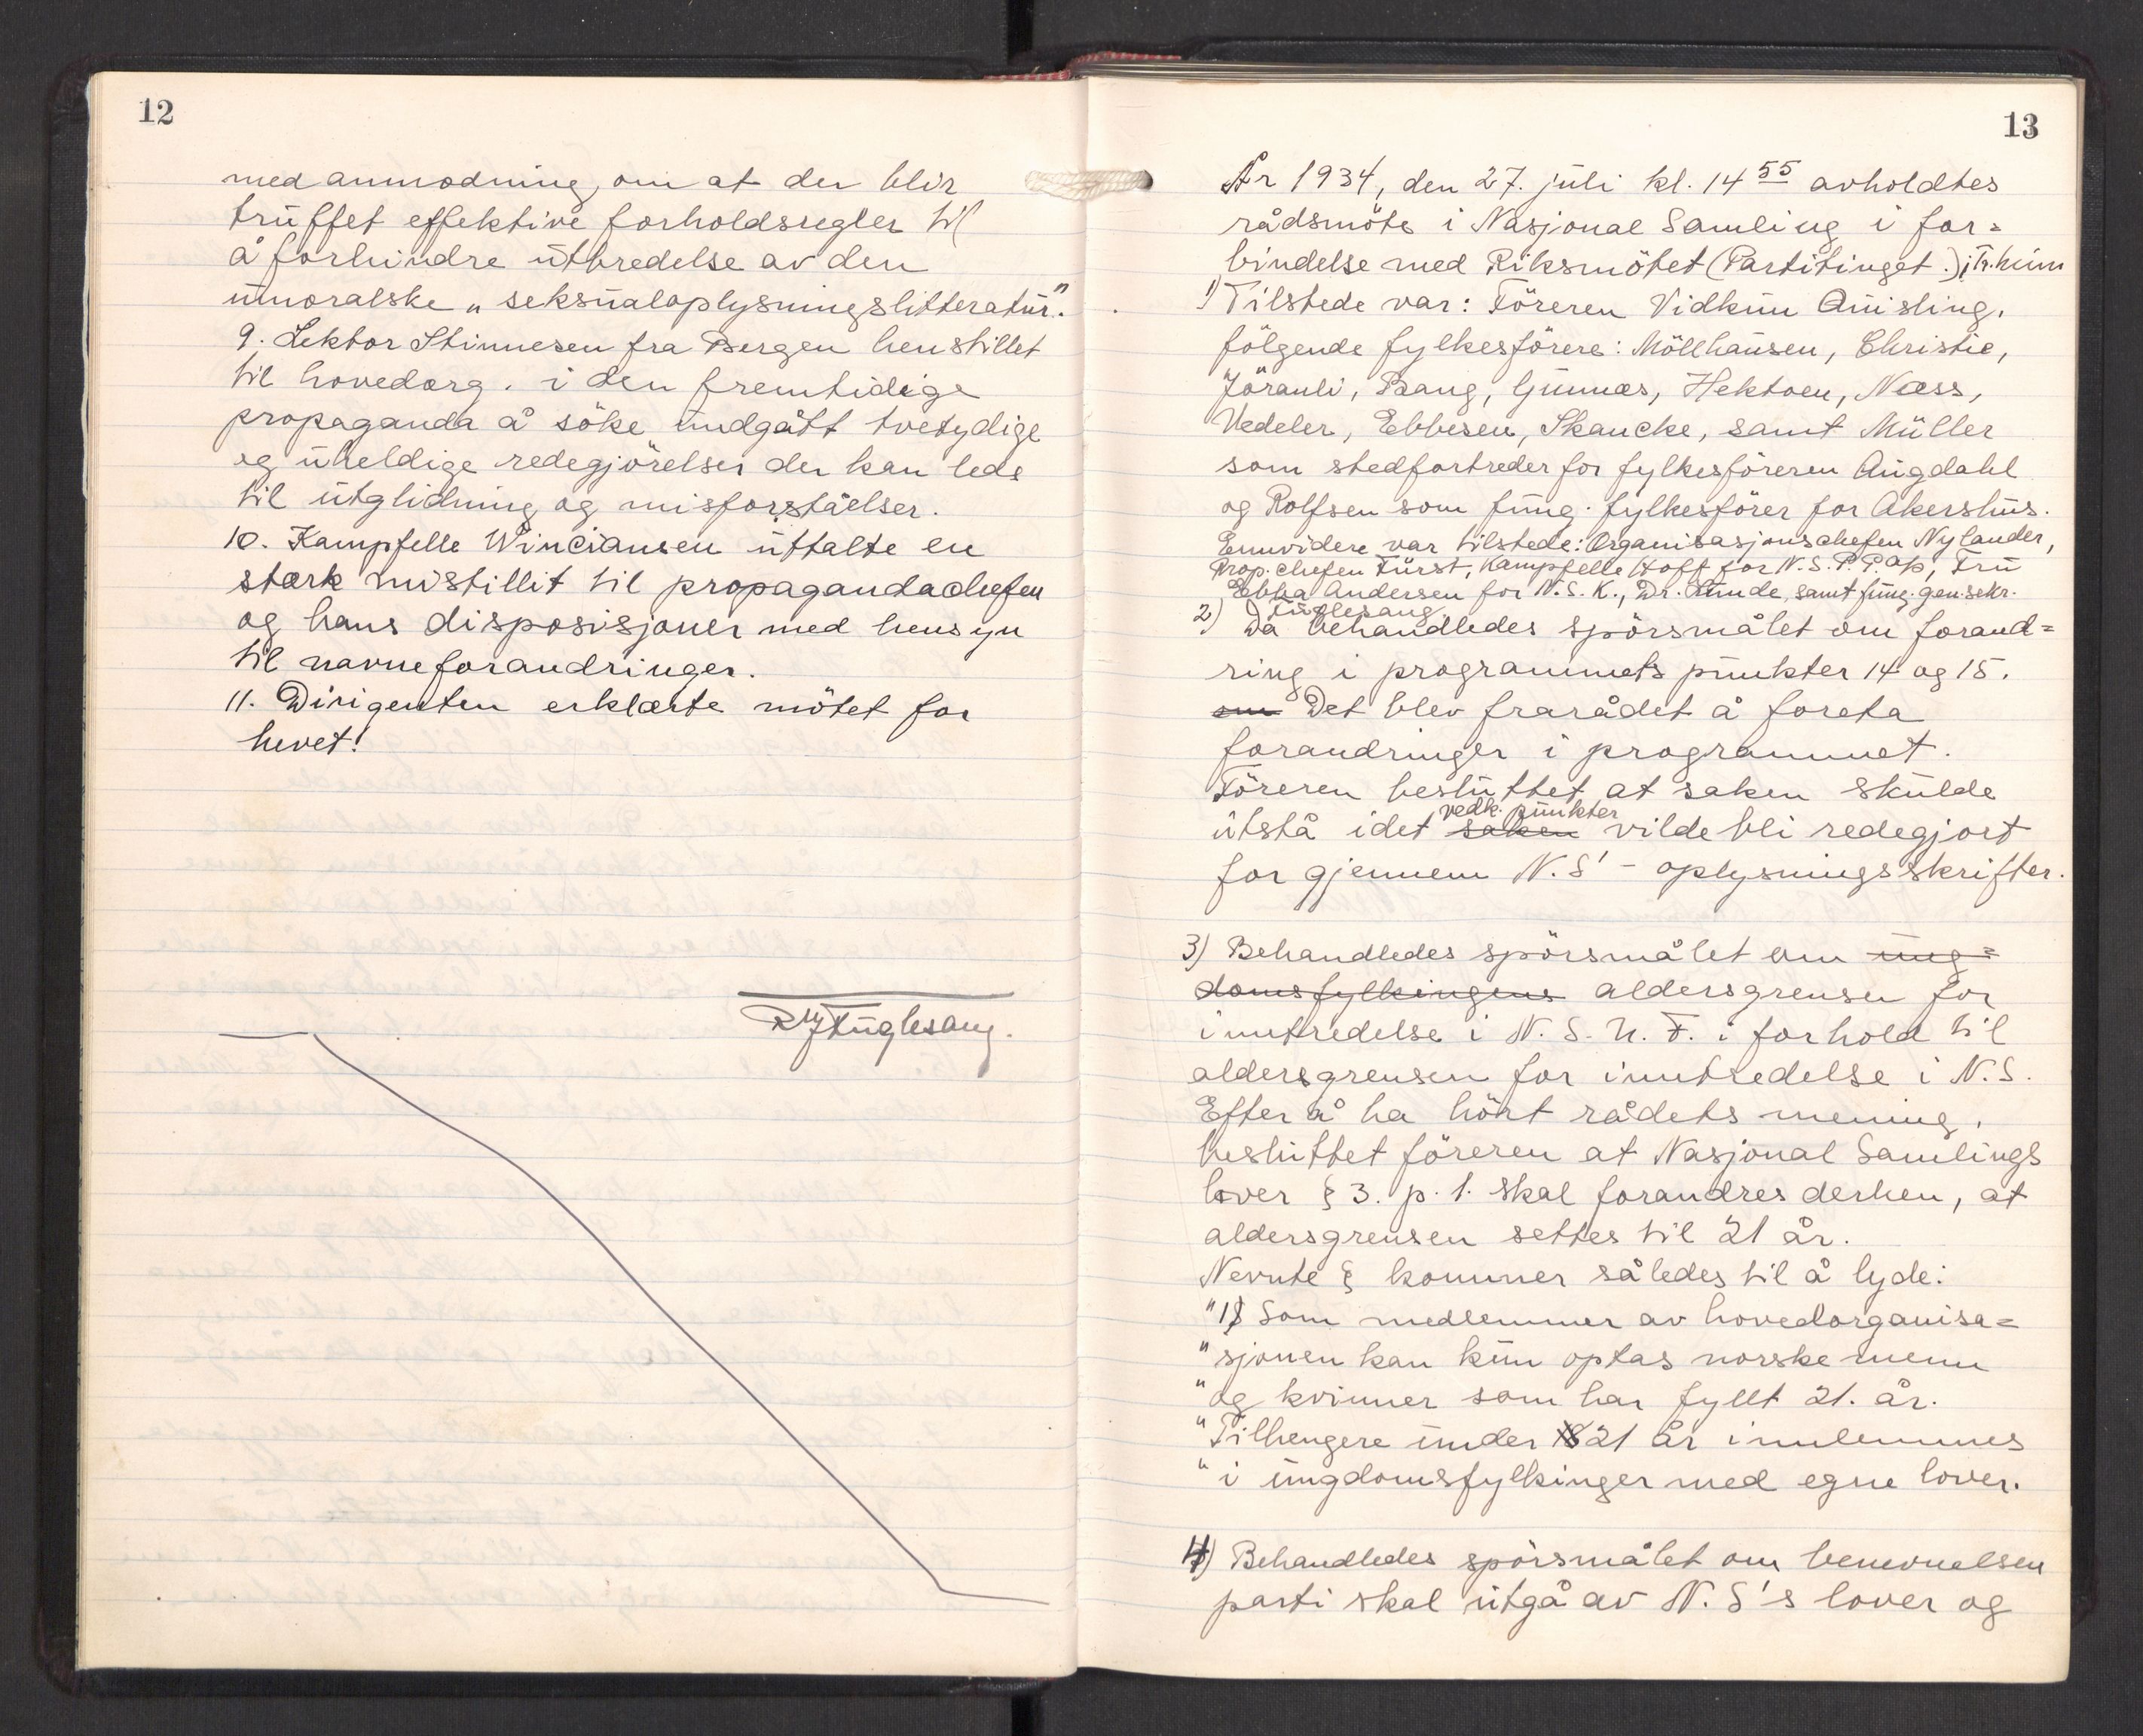 12
med anmodning, om at der blir
truffet effektive forholdsregler til
å forhindre utbredelse av den
umoralske „seksualoplysningslitteratur."
9. Lektor Stinnesen fra Bergen henstillet
til hovedorg. i den fremtidige
propaganda å söke undgått tvetydige
og uheldige redegjörelser der kan lede
til utglidning og misforståelser.
10. Kampfelle Winciansen uttalte en
stærk mistillit til propagandachefen
og hans disposisjoner med hensyn
til navneforandringer.
11. Dirigenten erklærte mötet for
hevet!
RMFuglesang.
13
År 1934, den 27. juli kl. 14 55 avholdtes
rådsmöte i Nasjonal Samling i for=
bindelse med Riksmötet (Partitinget.) i Tr.heim
1) Tilstede var: Föreren Vidkun Quisling,
fölgende fylkesförere: Möllhausen, Christie,
Jöranli, Bang, Gunnæs, Hektoen, Næss,
Vedeler, Ebbesen, Skancke, samt Müller
som stedfortreder for fylkesföreren Augdahl
og Rolfsen som fung. fylkesförer for Akershus.
Ennvidere var tilstede: Organisasjonschefen Nylander,
Prop. chefen Fürst, Kampfelle Hoff for N.S.P.P.ap, Fru
Ebba Andersen for N.S.K., Dr. Lunde, samt fung. gen.sekr.
Fuglesang
2) Da behandledes spörsmålet om forand=
ring i programmets punkter 14 og 15.
om Det blev frarådet å foreta
forandringer i programmet.
Föreren besluttet at saken skulde
vedk. punkter
utstå idet saken vilde bli redegjort
for gjennem N.S' - oplysningsskrifter.
3) Behandledes spörsmålet om ung=
domsfylkingens aldersgrensen for
inntredelse i N.S.U.F. i forhold til
aldersgrensen for inntredelse i N.S.
Efter å ha hört rådets mening,
besluttet föreren at Nasjonal Samlings
lover § 3. p. 1. skal forandres derhen, at
aldersgrensen settes til 21 år.
Nevnte § kommer således til å lyde:
"1) Som medlemmer av hovedorganisa=
"sjonen kan kun optas norske menn
"og kvinner som har fyllt 21. år.
"Tilhengere under 18 21 år innlemmes
"i ungdomsfylkinger med egne lover.
4) Behandledes spörsmålet om benevnelsen
parti skal utgå av N.S's lover og